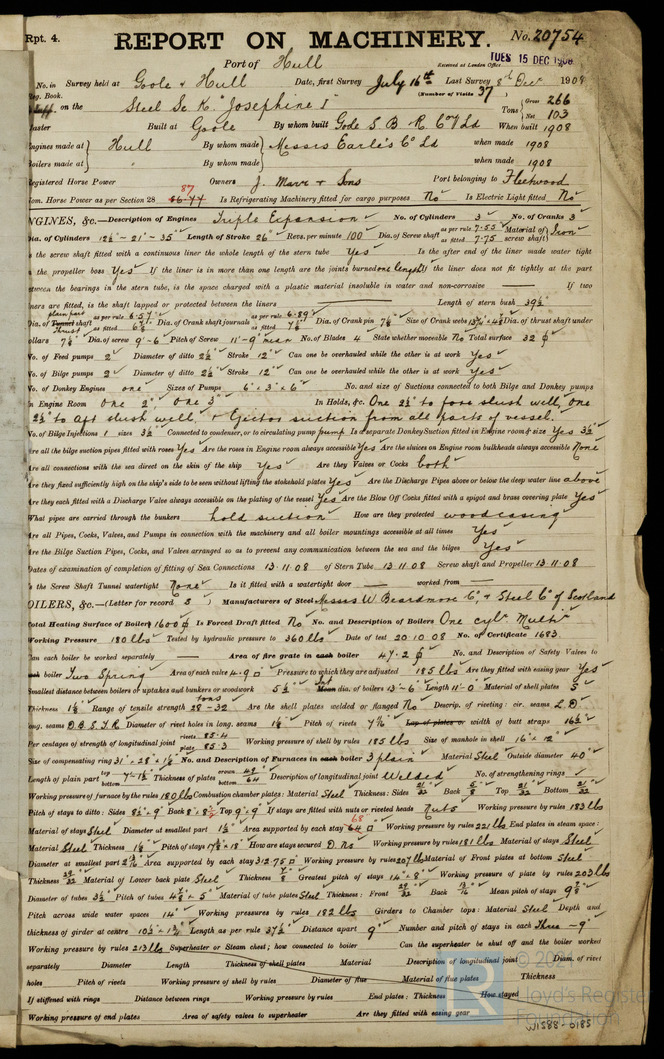 Rpt. 4.
REPORT ON MACHINERY.
No. 20754
Port of Hull
Received at London Office
TUES 15 DEC 1908
No. in Survey held at Goole & Hull Date, first Survey July 16th Last Survey 8th Decr 1908
Reg. Book.
(Number of Visits 37)
on the Steel Sc K "Josephine I"
Tons { Gross 266
Net 103
Master Built at Goole By whom built Goole S. B. & R. Co Ld When built 1908
Engines made at Hull By whom made Messrs Earle's Co Ld when made 1908
Boilers made at " By whom made when made 1908
Registered Horse Power Owners J. Marr & Sons Port belonging to Fleetwood
87
Nom. Horse Power as per Section 28 Is Refrigerating Machinery fitted for cargo purposes No Is Electric Light fitted No
ENGINES, &c.—Description of Engines Triple Expansion No. of Cylinders 3 No. of Cranks 3
Dia. of Cylinders 12½" - 21" - 35" Length of Stroke 26" Revs. per minute 100 Dia. of Screw shaft as per rule 7.55 as fitted 7.75 Material of screw shaft Iron
Is the screw shaft fitted with a continuous liner the whole length of the stern tube Yes Is the after end of the liner made water tight
in the propeller boss Yes If the liner is in more than one length are the joints burned one length If the liner does not fit tightly at the part
between the bearings in the stern tube, is the space charged with a plastic material insoluble in water and non-corrosive — If two
liners are fitted, is the shaft lapped or protected between the liners — Length of stern bush 39½"
Dia. of Tunnel shaft as per rule 6.57 Dia. of Crank shaft journals as per rule 6.89 as fitted 7¼" Dia. of Crank pin 7¼" Size of Crank webs Dia. of thrust shaft under
collars 7¼" Dia. of screw 9'-6" Pitch of Screw 11'-9" mean No. of Blades 4 State whether moveable No Total surface 32
No. of Feed pumps 2 Diameter of ditto 2½" Stroke 12" Can one be overhauled while the other is at work Yes
No. of Bilge pumps 2 Diameter of ditto 2½" Stroke 12" Can one be overhauled while the other is at work Yes
No. of Donkey Engines one Sizes of Pumps 6" x 3" x 6" No. and size of Suctions connected to both Bilge and Donkey pumps
In Engine Room One 2" One 3" In Holds, &c. One 2½" to fore slush well, one
2½" to aft slush well. & Ejector suction from all parts of vessel.
No. of Bilge Injections 1 sizes 3½" Connected to condenser, or to circulating pump pump Is a separate Donkey Suction fitted in Engine room & size Yes 3½"
Are all the bilge suction pipes fitted with roses Yes Are the roses in Engine room always accessible Yes Are the sluices on Engine room bulkheads always accessible None
Are all connections with the sea direct on the skin of the ship Yes Are they Valves or Cocks both
Are they fixed sufficiently high on the ship's side to be seen without lifting the stokehold plates Yes Are the Discharge Pipes above or below the deep water line above
Are they each fitted with a Discharge Valve always accessible on the plating of the vessel Yes Are the Blow Off Cocks fitted with a spigot and brass covering plate Yes
What pipes are carried through the bunkers hold suction How are they protected wood casing
Are all Pipes, Cocks, Valves, and Pumps in connection with the machinery and all boiler mountings accessible at all times Yes
Are the Bilge Suction Pipes, Cocks, and Valves arranged so as to prevent any communication between the sea and the bilges Yes
Dates of examination of completion of fitting of Sea Connections 13.11.08 of Stern Tube 13.11.08 Screw shaft and Propeller 13.11.08
Is the Screw Shaft Tunnel watertight None Is it fitted with a watertight door — worked from —
BOILERS, &c.—(Letter for record S) Manufacturers of Steel Messrs W. Beardmore Co & Steel Co of Scotland
Total Heating Surface of Boilers 1600 Is Forced Draft fitted No No. and Description of Boilers One cyl. Multi
Working Pressure 180 lbs Tested by hydraulic pressure to 360 lbs Date of test 20.10.08 No. of Certificate 1683
Can each boiler be worked separately — Area of fire grate in each boiler 47.2 No. and Description of Safety Valves to
each boiler Two Spring Area of each valve 4.9 Pressure to which they are adjusted 185 lbs Are they fitted with easing gear Yes
Smallest distance between boilers or uptakes and bunkers or woodwork 5½" Mean dia. of boilers 13'-6" Length 11'-0" Material of shell plates S
Thickness 1⅛" Range of tensile strength 28-32 tons Are the shell plates welded or flanged No Descrip. of riveting: cir. seams L.D.
long. seams D.B.S.T.R. Diameter of rivet holes in long. seams 1⅛" Pitch of rivets 7⅝" Lap of plates or width of butt straps 16½"
Per centages of strength of longitudinal joint rivets 85.4 plate 85.3 Working pressure of shell by rules 185 lbs Size of manhole in shell 16" x 12"
Size of compensating ring 31" x 28" x 1⅛" No. and Description of Furnaces in each boiler 3 plain Material Steel Outside diameter 40"
Length of plain part top bottom Thickness of plates crown bottom Description of longitudinal joint Welded No. of strengthening rings
Working pressure of furnace by the rules 180 lbs Combustion chamber plates: Material Steel Thickness: Sides 21/32 Back 5/8 Top 21/32 Bottom 21/32
Pitch of stays to ditto: Sides 8½" x 9" Back Top 9" x 9" If stays are fitted with nuts or riveted heads Nuts Working pressure by rules 183 lbs
Material of stays Steel Diameter at smallest part 1½" Area supported by each stay 68 Working pressure by rules 221 lbs End plates in steam space:
Material Steel Thickness 1⅛" Pitch of stays How are stays secured D. No Working pressure by rules 181 lbs Material of stays Steel
Diameter at smallest part Area supported by each stay 312.75 Working pressure by rules 207 lbs Material of Front plates at bottom Steel
Thickness 29/32 Material of Lower back plate Steel Thickness 7/8 Greatest pitch of stays 14" x 8" Working pressure of plate by rules 203 lbs
Diameter of tubes 3½" Pitch of tubes Material of tube plates Steel Thickness: Front 29/32 Back 13/16 Mean pitch of stays 9⅞"
Pitch across wide water spaces 14" Working pressures by rules 182 lbs Girders to Chamber tops: Material Steel Depth and
thickness of girder at centre 10½" x 1¾" Length as per rule 37½" Distance apart 9" Number and pitch of stays in each Three - 9"
Working pressure by rules 213 lbs Superheater or Steam chest; how connected to boiler Can the superheater be shut off and the boiler worked
separately Diameter Length Thickness of shell plates Material Description of longitudinal joint Diam. of rivet
holes Pitch of rivets Working pressure of shell by rules Diameter of flue Material of flue plates Thickness
If stiffened with rings Distance between rings Working pressure by rules End plates: Thickness How stayed
Working pressure of end plates Area of safety valves to superheater Are they fitted with easing gear
© 202
Lloyd's Register
Foundation
W1588-0185